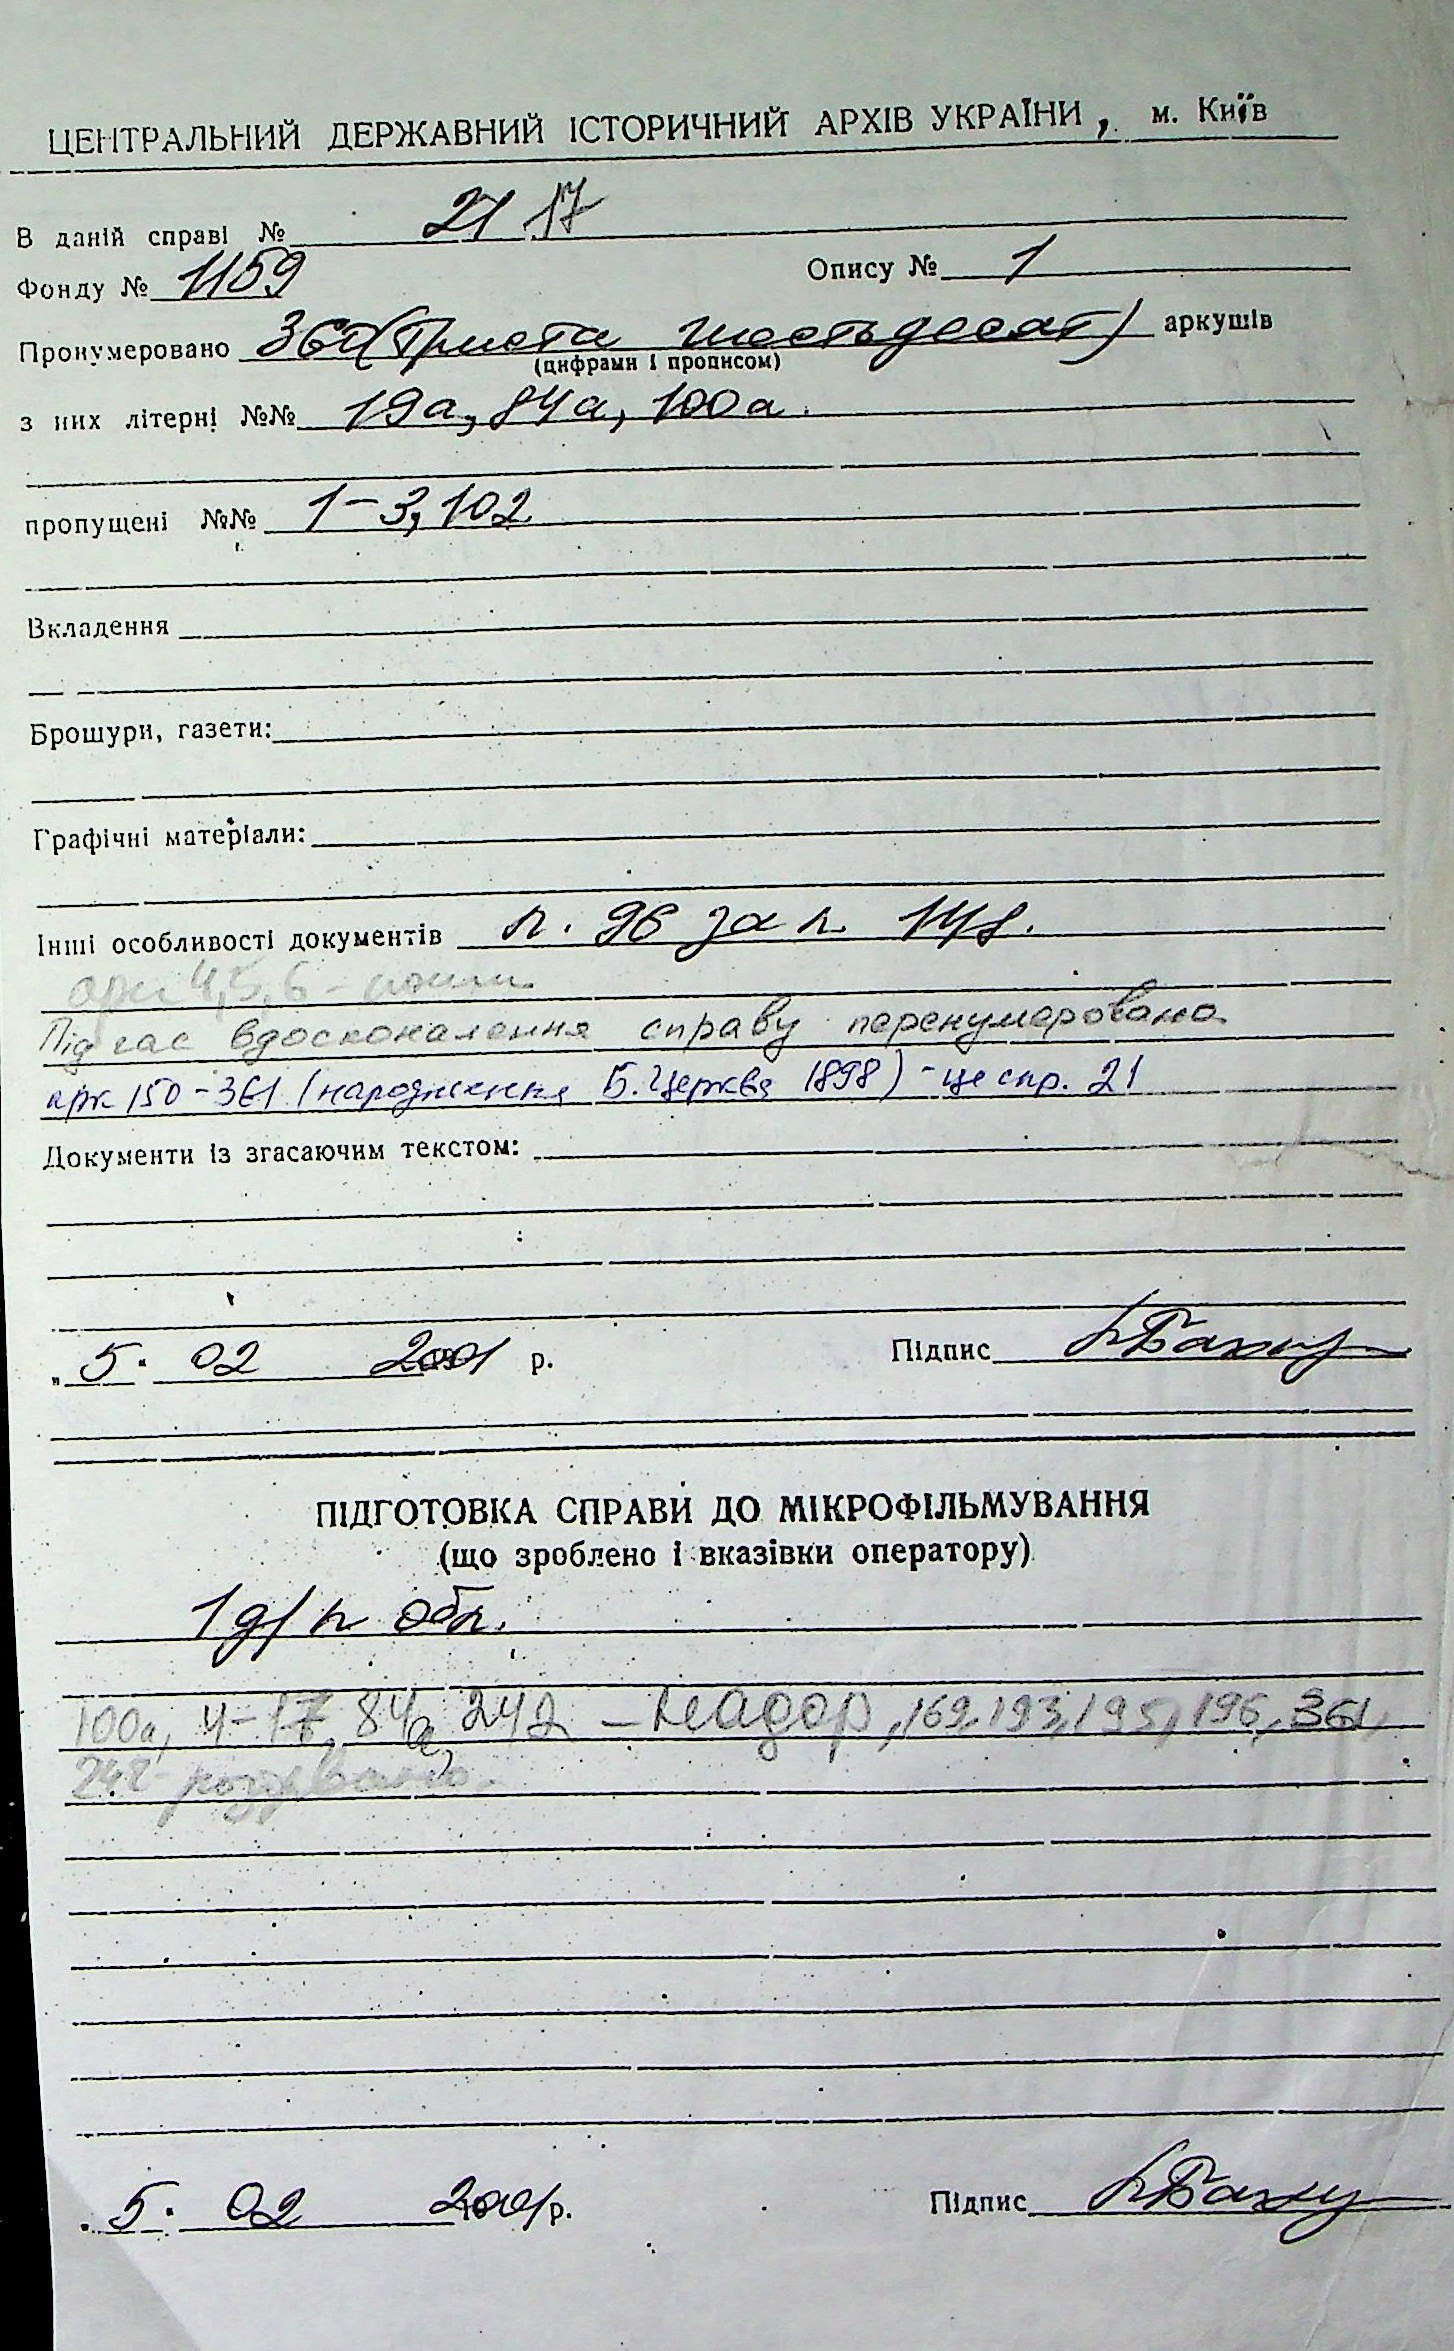 ЦЕНТРАЛЬНИЙ ДЕРЖАВНИЙ ІСТОРИЧНИЙ АРХІВ УКРАЇНИ, м. Київ
В даній справі № 21 17
Фонду № 1159 Опису № 1
Пронумеровано 360 (Триста шестьдесят) аркушів
(цифрами і прописом)
з них літерні №№ 19а, 84а, 100а.
пропущені №№ 1-3, 102
Вкладення
Брошури, газети:
Графічні матеріали:
Інші особливості документів л. 96 за л. 148.
арк 4, 5, 6 -
Під час вдосконалення справу перенумеровано
арк 150-361 (народження Б. Церква 1898) - це спр. 21
Документи із згасаючим текстом:
„ 5. 02 2001 р. Підпис
ПІДГОТОВКА СПРАВИ ДО МІКРОФІЛЬМУВАННЯ
(що зроблено і вказівки оператору)
1 д/л обл.
100а, 4-17, 84а, 242 - надор, 169, 193, 195, 196, 361,
242 розірвано.
5. 02 2001 р. Підпис